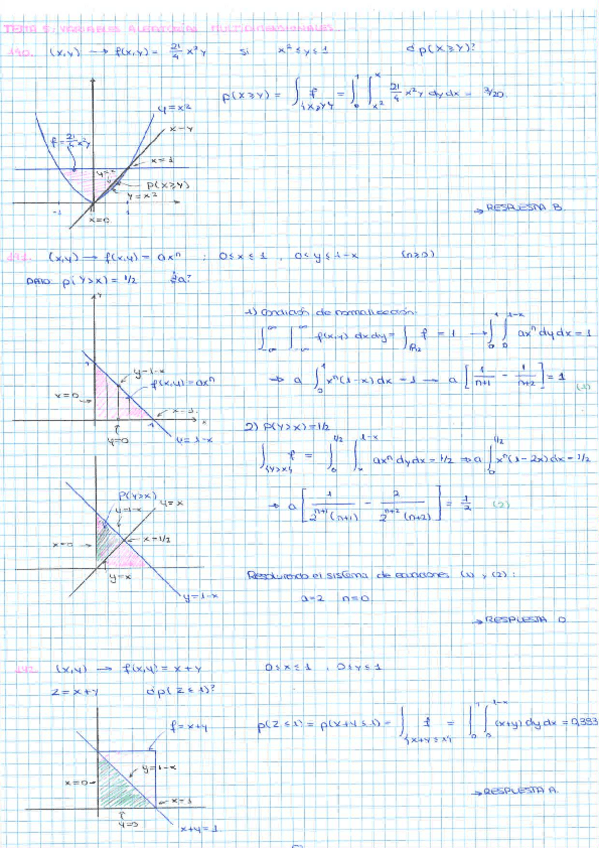 TEMA 5: VARIABLES ALEATORIAS MULTIDIMENSIONALES
190. (x,y) → f(x,y) = 21/4 x²y si x² ≤ y ≤ 1 ¿p(x≥y)?
p(x≥y) = ∫_{x≥y} f = ∫_0^1 ∫_{x²}^x 21/4 x²y dy dx = 3/20.
y=x²
x=y
f=21/4 x²y
x=1
y=x
p(x≥y)
y=x²
-1
1
x=0
→ RESPUESTA B.
191. (x,y) → f(x,y) = axⁿ ; 0≤x≤1, 0≤y≤1-x (n≥0)
DATO: p(y>x) = 1/2 ¿a?
1) Condición de normalización:
∫_{-∞}^{∞} ∫_{-∞}^{∞} f(x,y) dxdy = ∫_{R2} f = 1 → ∫_0^1 ∫_0^{1-x} axⁿ dy dx = 1
⇒ a ∫_0^1 xⁿ(1-x) dx = 1 → a [1/(n+1) - 1/(n+2)] = 1 (1)
y=1-x
f(x,y)=axⁿ
x=0
x=1
y=0
y=1-x
2) p(y>x)=1/2
∫_{y>x} f = ∫_0^{1/2} ∫_x^{1-x} axⁿ dy dx = 1/2 ⇒ a ∫_0^{1/2} xⁿ(1-2x) dx = 1/2
→ a [1/(2^{n+1}(n+1)) - 2/(2^{n+2}(n+2))] = 1/2 (2)
p(y>x)
y=x
y=1-x
x=0
x=1/2
y=x
y=1-x
Resolviendo el sistema de ecuaciones (1) y (2):
a=2 n=0
→ RESPUESTA D
192. (x,y) → f(x,y) = x+y 0≤x≤1, 0≤y≤1
z=x+y ¿p(z≤1)?
p(z≤1) = p(x+y≤1) = ∫_{x+y≤1} f = ∫_0^1 ∫_0^{1-x} (x+y) dy dx = 0,333
f=x+y
y=1-x
x=0
x=1
y=0
x+y=1
→ RESPUESTA A.